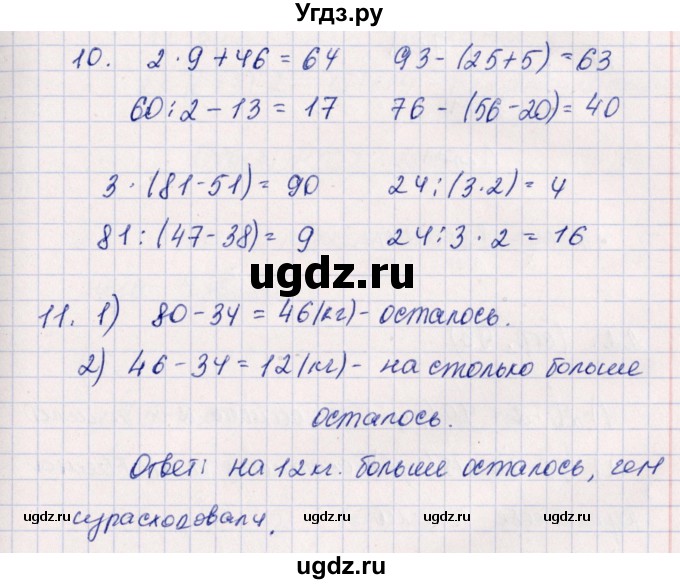 Угдз.ру
10. 2 · 9 + 46 = 64 93 - (25+5) = 63
60 : 2 - 13 = 17 76 - (56-20) = 40
3 · (81-51) = 90 24 : (3·2) = 4
81 : (47-38) = 9 24 : 3 · 2 = 16
ugdz.ru
11. 1) 80 - 34 = 46 (кг) - осталось.
2) 46 - 34 = 12 (кг) - на столько больше
осталось.
Ответ: на 12 кг. больше осталось, чем
израсходовали.
ugdz.ru ugdz.ru ugdz.ru ugdz.ru